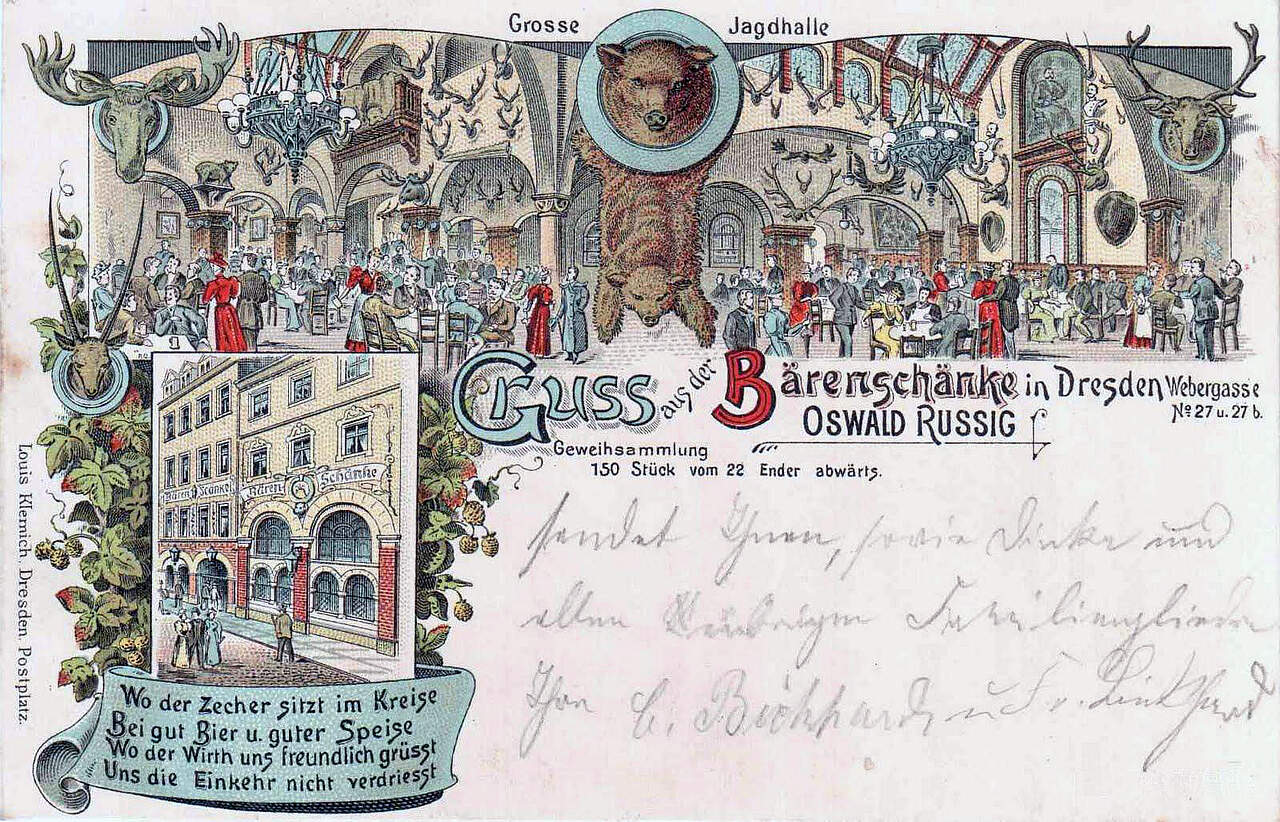 Grosse Jagdhalle
Gruss aus der Bärenschänke in Dresden Webergasse
No 27 u. 27 b.
OSWALD RUSSIG
Geweihsammlung
150 Stück vom 22 Ender abwärts.
Bären Schänke
sendet Ihnen, sowie Dinka und
allen übrigen Familienglieder
Ihr
Wo der Zecher sitzt im Kreise
Bei gut Bier u. guter Speise
Wo der Wirth uns freundlich grüsst
Uns die Einkehr nicht verdriesst
Louis Klemich, Dresden, Postplatz.